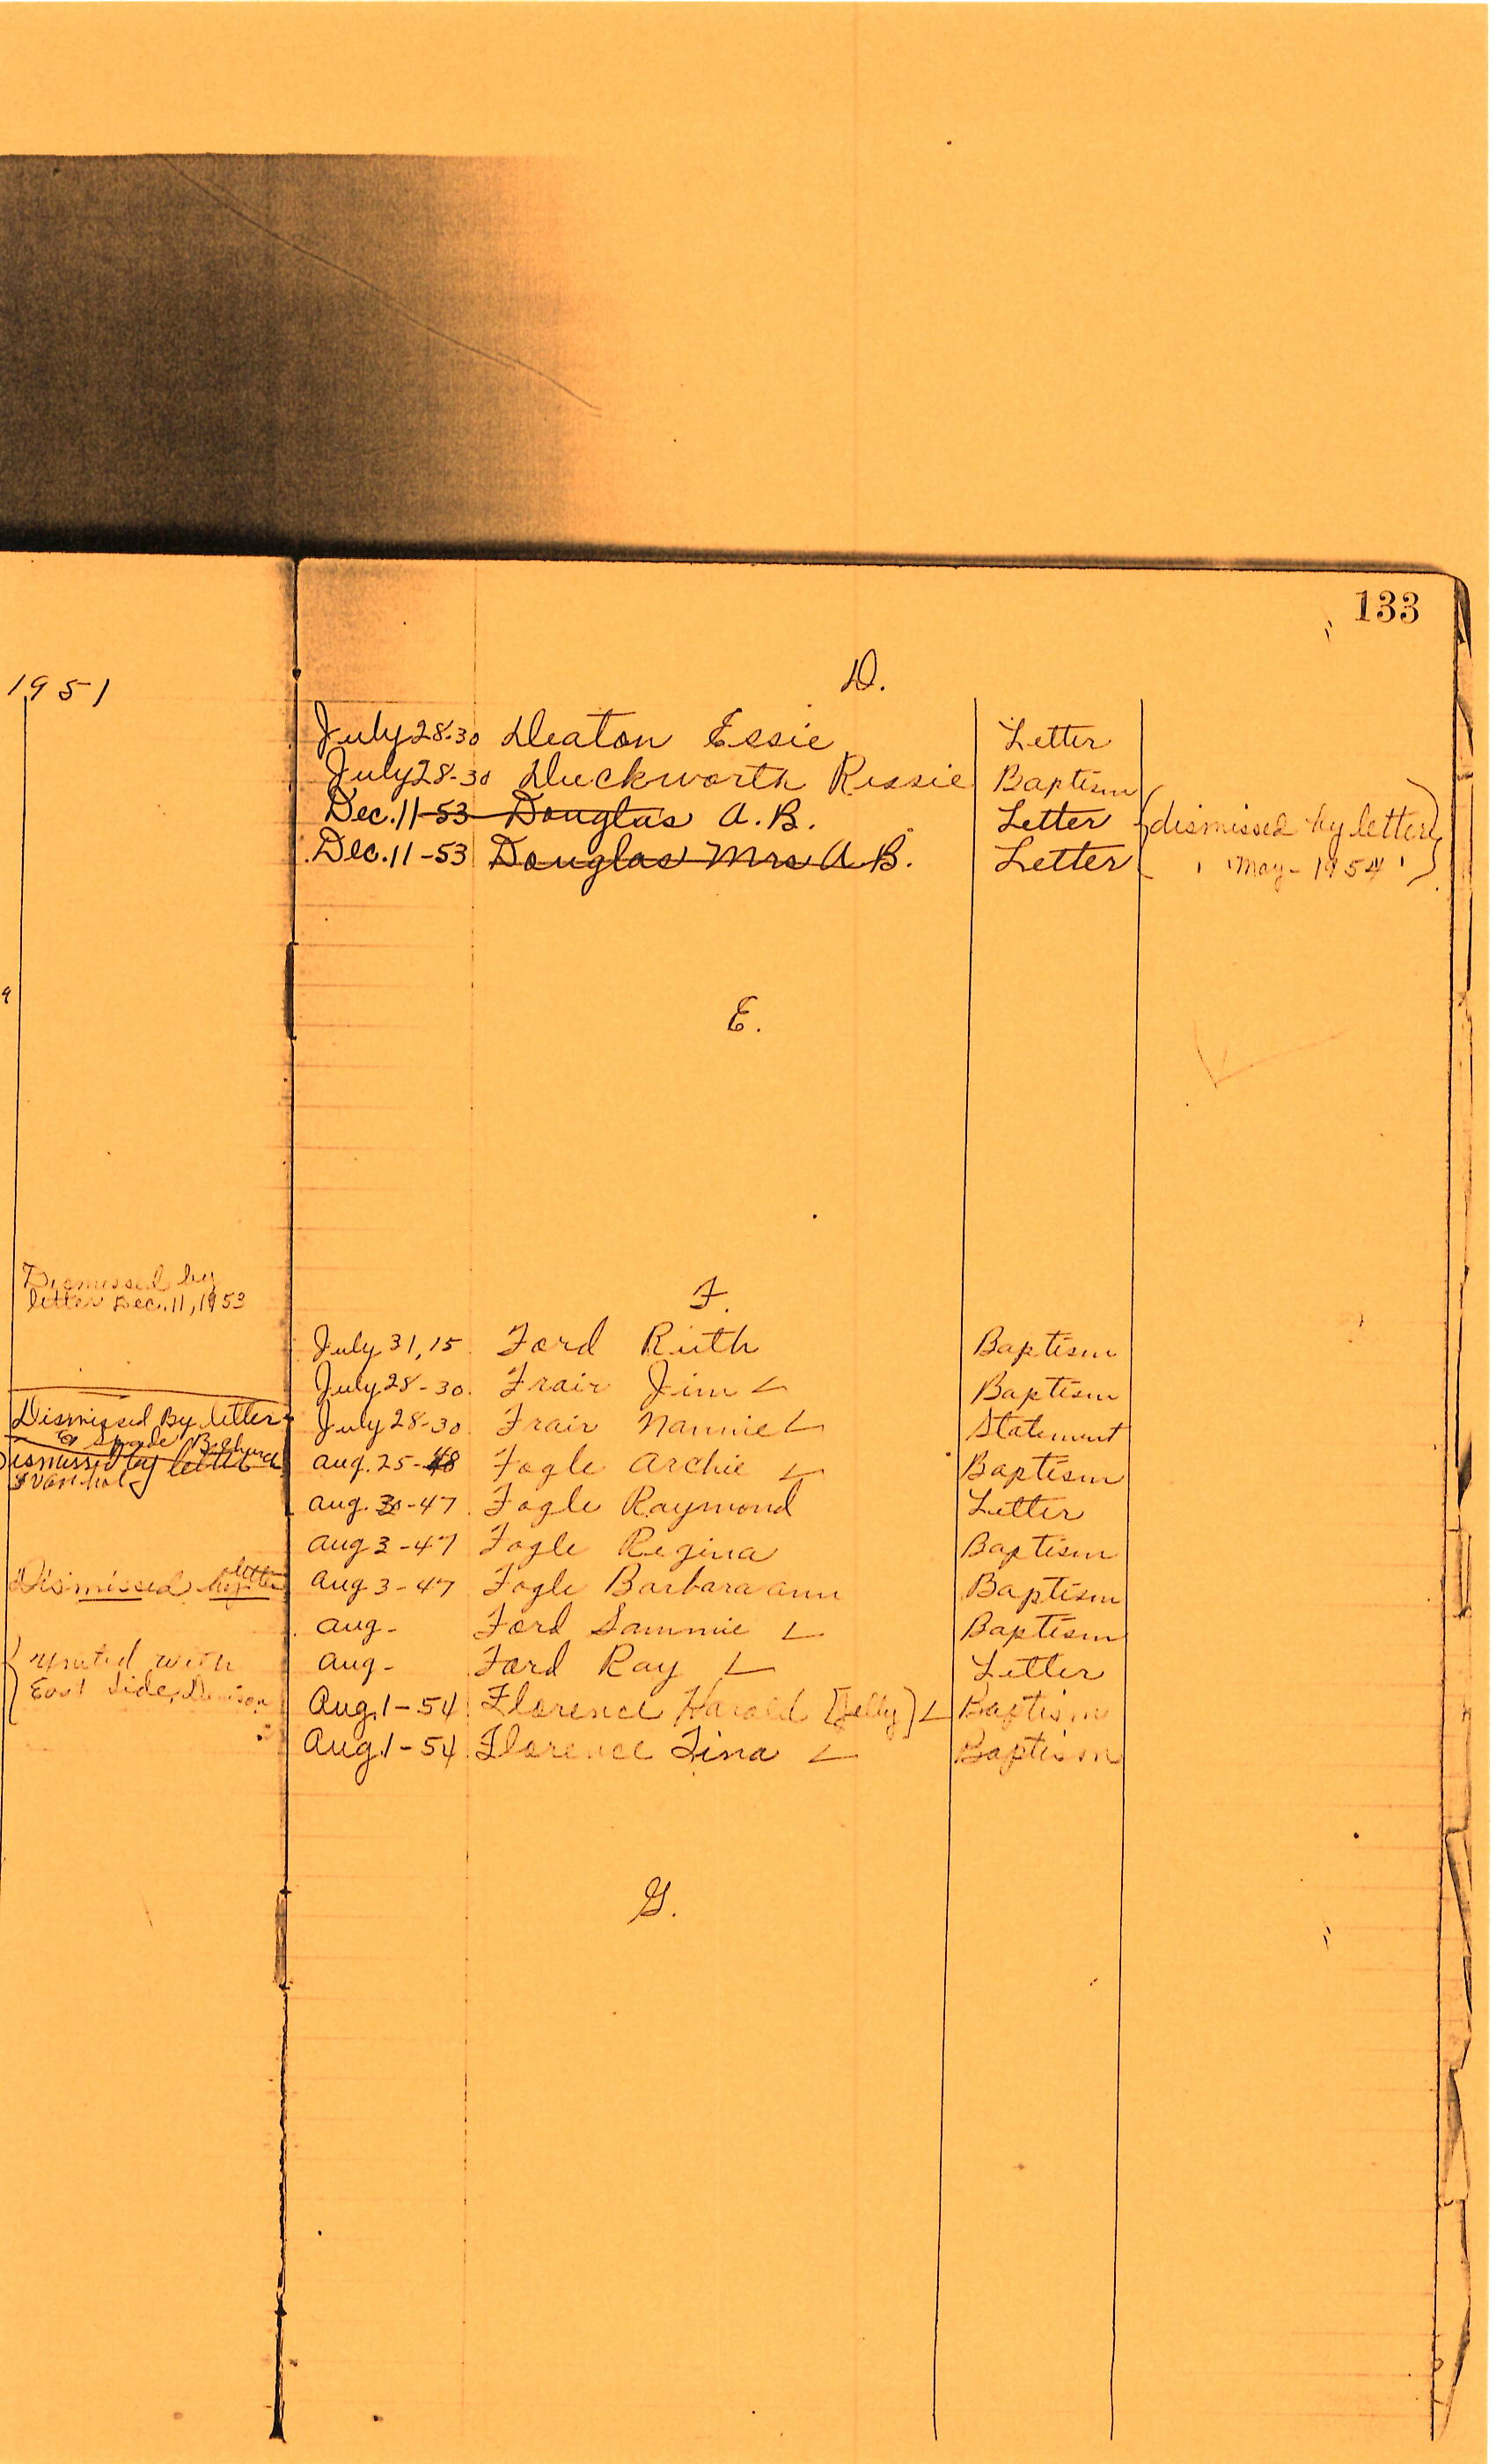 133
1951
D.
July 28-30 Deaton Essie Letter
July 28-30 Duckworth Rissie Baptism
Dec. 11-53 Douglas A. B. Letter {dismissed by letter}
Dec. 11-53 Douglas Mrs A B. Letter { " May - 1954 " }
9
E.
Dismissed by
letter Dec. 11, 1953
F.
July 31, 15 Ford Ruth Baptism
July 28-30. Frair Jim Baptism
July 28-30 Frair Nannie Statement
Aug. 25-48 Fogle Archie Baptism
Aug. 30-47 Fogle Raymond Letter
Aug 3-47 Fogle Regina Baptism
Aug 3-47 Fogle Barbara Ann Baptism
Aug- Ford Sammie Baptism
Aug- Ford Ray Letter
Aug. 1-54 Florence Harold [Jelly] Baptism
Aug. 1-54 Florence Tina Baptism
Dismissed By letter
to
Dismissed by letter
Dismissed by letter
{ united with
East Side, Denison
G.